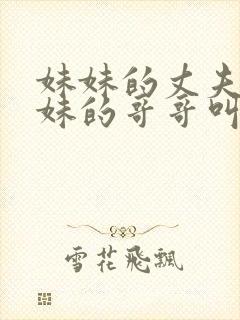 妹妹的丈夫
妹的哥哥叫
雪花飛飄